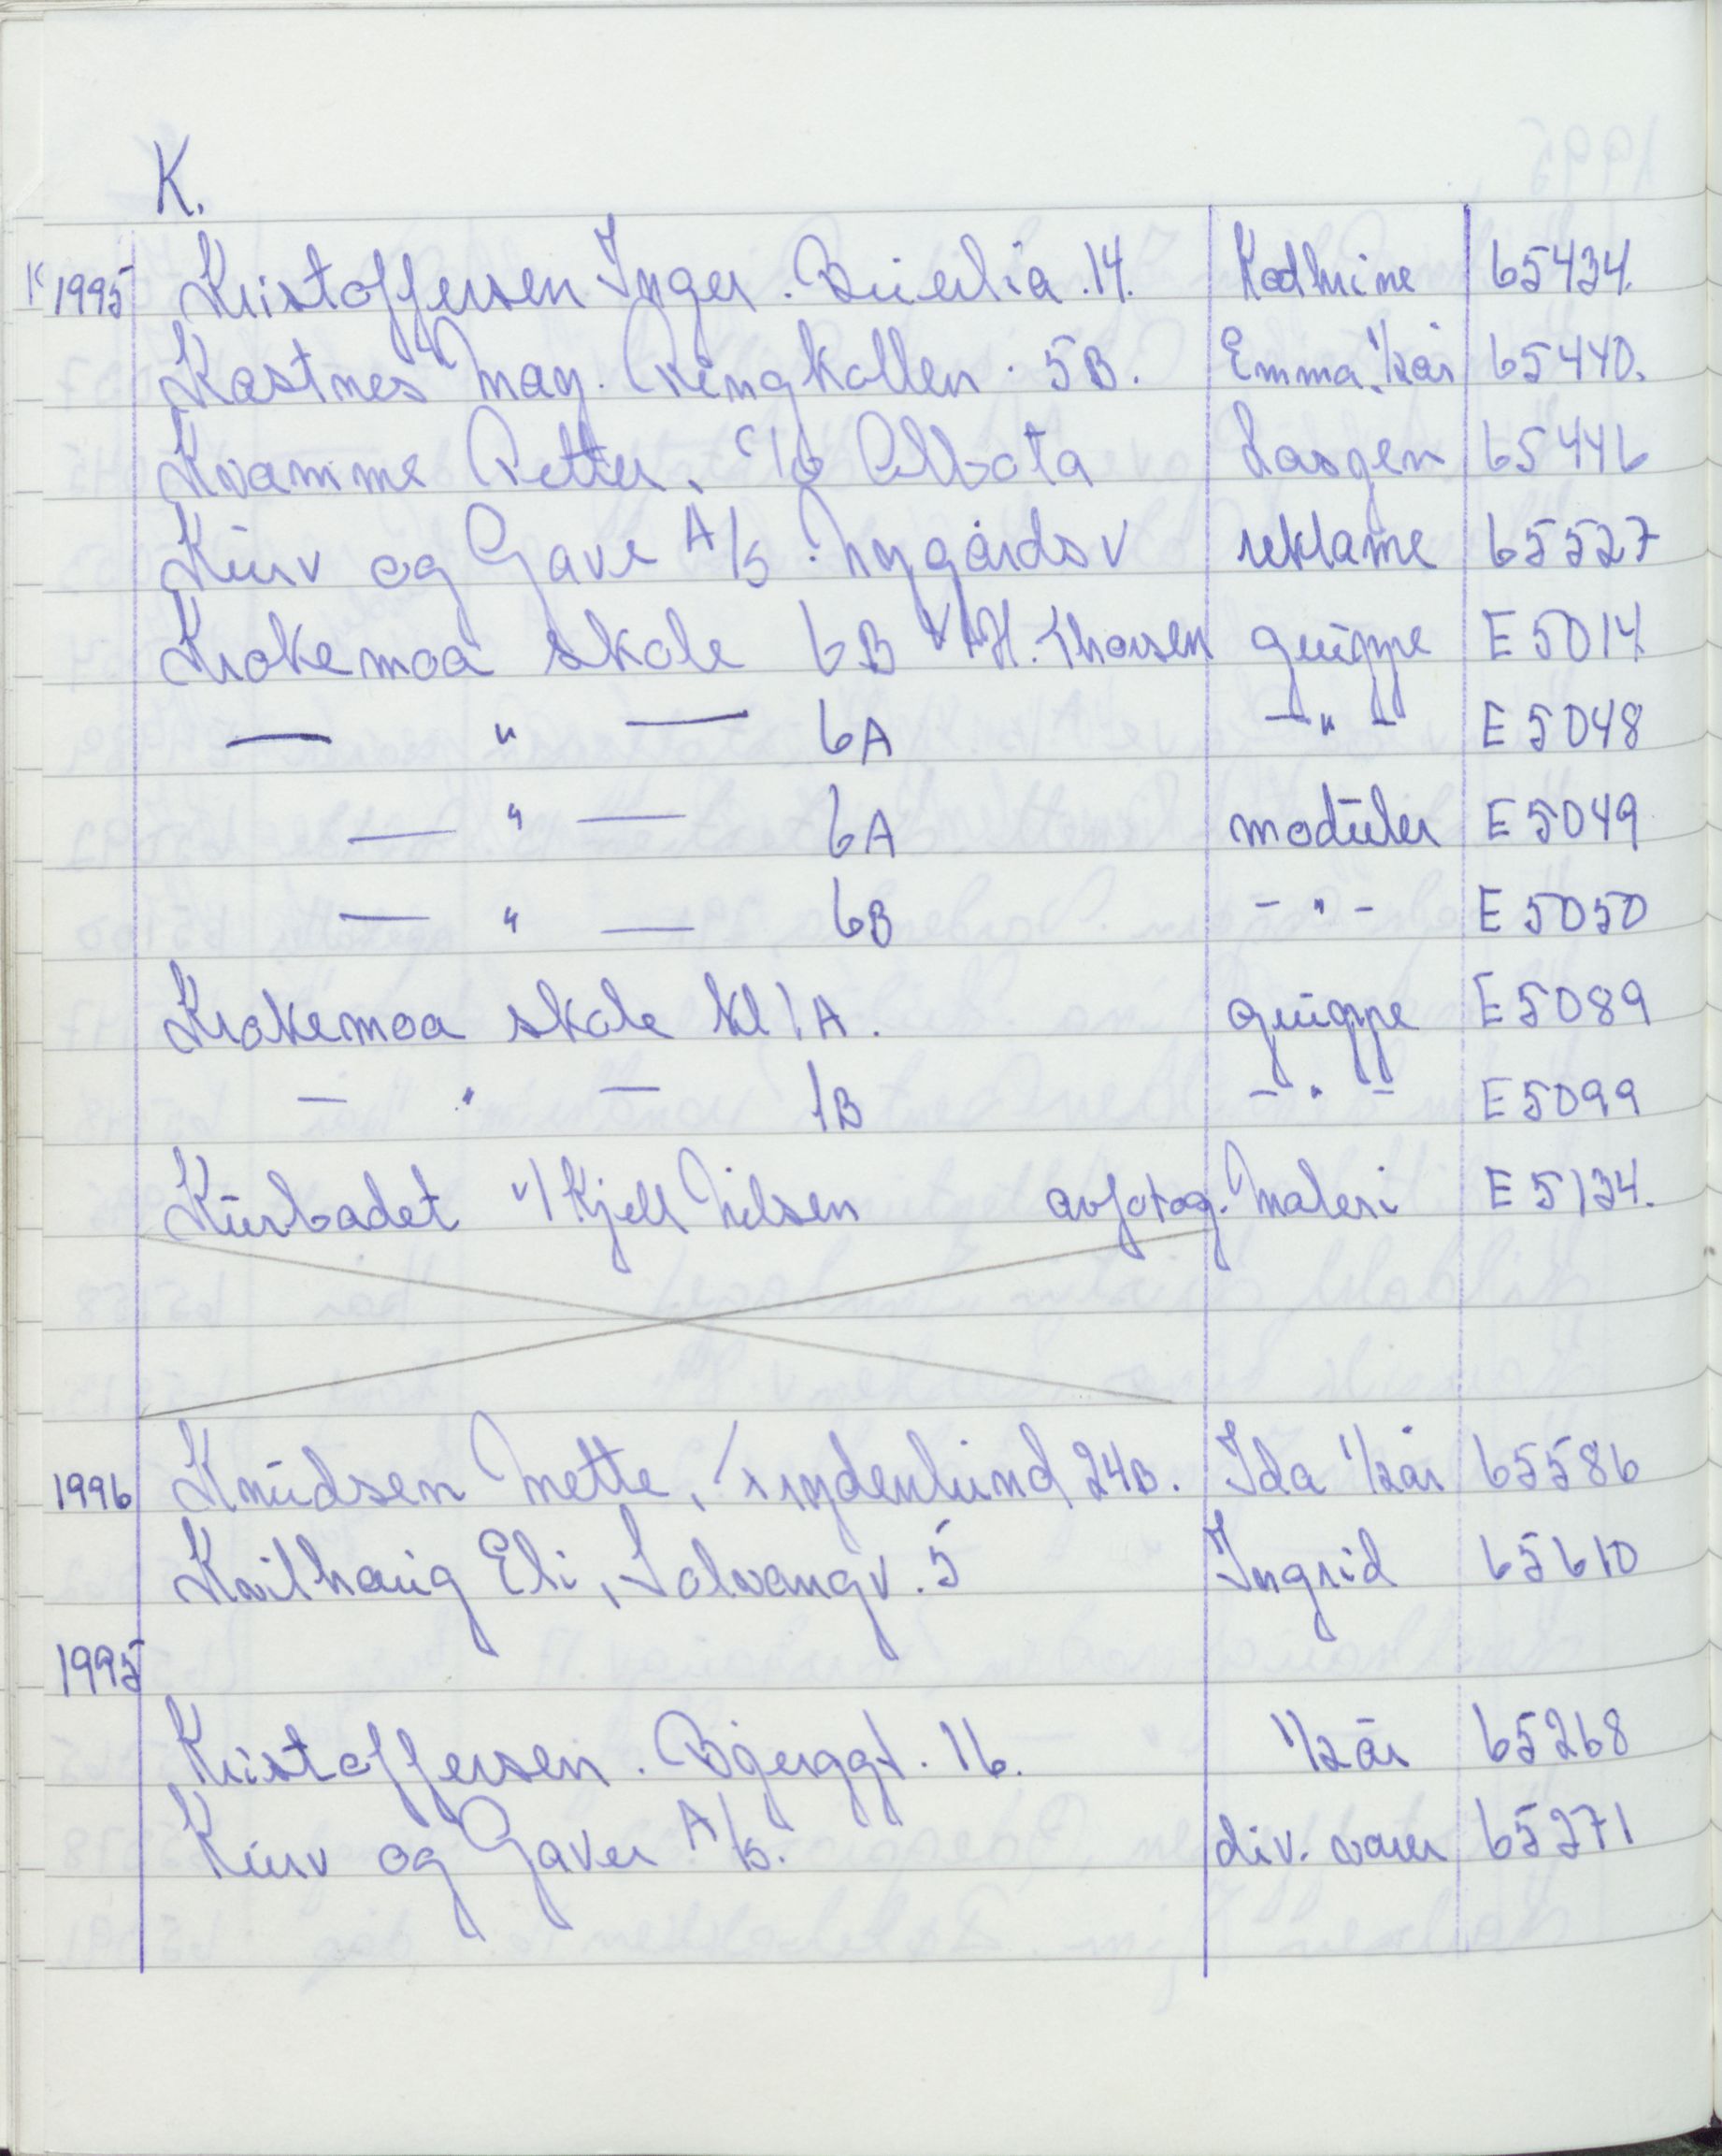 K.
K 1995 Kristoffersen Inger. Buerlia. 14. Kathrine 65434.
Kastnes May. Ringkollen. 5B. Emma. 1/2 år 65440.
Kvamme Petter, c/o Albata Lasgen 65446
Kurv og Gave A/S. Nygårds v reklame 65527
Krokemoa skole 6B v/ H. Thorsen gruppe E 5014
— " — 6A — " — E 5048
— " — 6A moduler E 5049
— " — 6B - " - E 5050
Krokemoa skole kl 1A. gruppe E 5089
— " — 1B - " - E 5099
Kurbadet v/ Kjell Nilsen avfotog. Maleri E 5134.
1996 Knudsen Mette, Frydenlund 24B. Ida 1/2 år 65586
Kvilhaug Eli, Solvangv. 5 Ingrid 65610
1995
Kristoffersen. Bjerggt. 16. 1/2 år 65268
Kurv og Gaver A/S. div. varer 65271